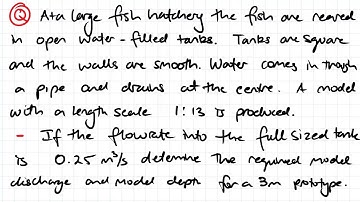 Q At a large fish hatchery the fish are reared
in open water-filled tanks. Tanks are square
and the walls are smooth. Water comes in through
a pipe and drains at the centre. A model
with a length scale 1:13 is produced.
- If the flowrate into the full sized tank
is 0.25 m³/s determine the required model
discharge and model depth for a 3m prototype.